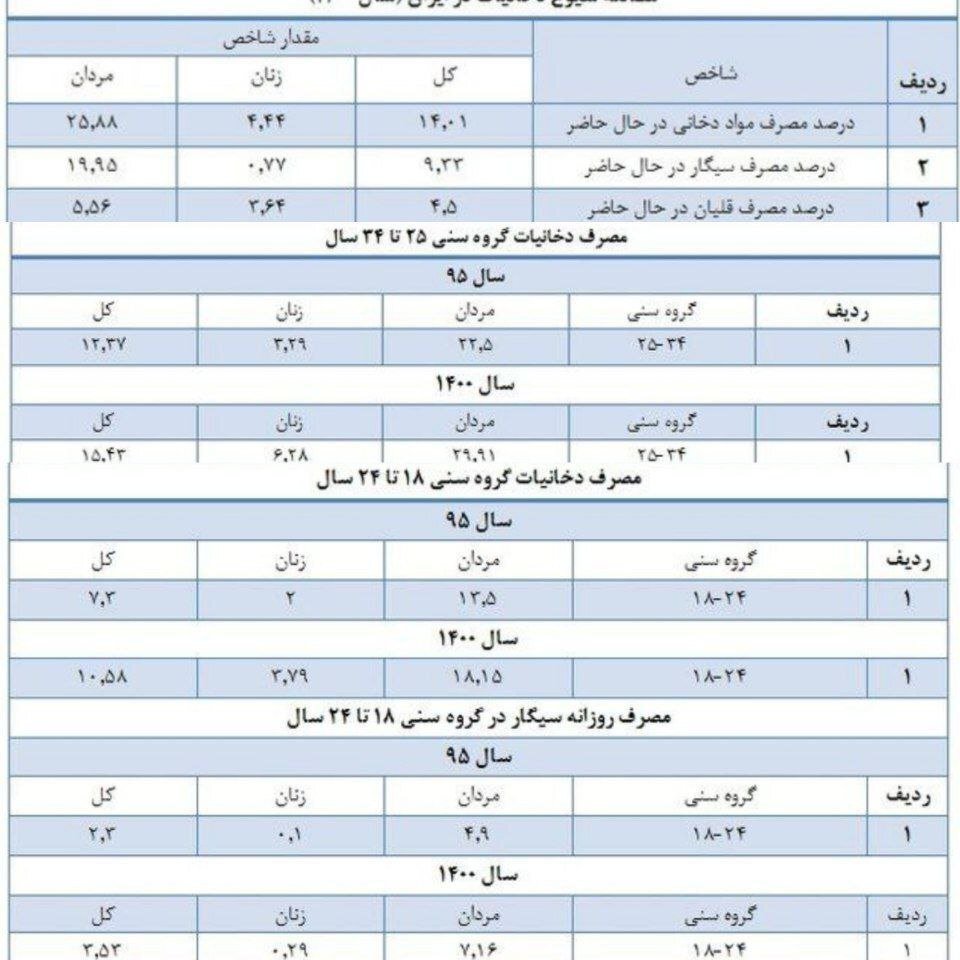 ردیف شاخص مقدار شاخص
کل زنان مردان
۱ درصد مصرف مواد دخانی در حال حاضر ۱۴,۰۱ ۴,۴۴ ۲۵,۸۸
۲ درصد مصرف سیگار در حال حاضر ۹,۳۳ ۰,۷۷ ۱۹,۹۵
۳ درصد مصرف قلیان در حال حاضر ۴,۵ ۳,۶۴ ۵,۵۶
مصرف دخانیات گروه سنی ۲۵ تا ۳۴ سال
سال ۹۵
ردیف گروه سنی مردان زنان کل
۱ ۲۵-۳۴ ۲۲,۵ ۳,۲۹ ۱۲,۳۷
سال ۱۴۰۰
ردیف گروه سنی مردان زنان کل
۱ ۲۵-۳۴ ۲۹,۹۱ ۶,۲۸ ۱۵,۴۳
مصرف دخانیات گروه سنی ۱۸ تا ۲۴ سال
سال ۹۵
ردیف گروه سنی مردان زنان کل
۱ ۱۸-۲۴ ۱۳,۵ ۲ ۷,۳
سال ۱۴۰۰
۱ ۱۸-۲۴ ۱۸,۱۵ ۳,۷۹ ۱۰,۵۸
مصرف روزانه سیگار در گروه سنی ۱۸ تا ۲۴ سال
سال ۹۵
ردیف گروه سنی مردان زنان کل
۱ ۱۸-۲۴ ۴,۹ ۰,۱ ۲,۳
سال ۱۴۰۰
ردیف گروه سنی مردان زنان کل
۱ ۱۸-۲۴ ۷,۱۶ ۰,۲۹ ۳,۵۳